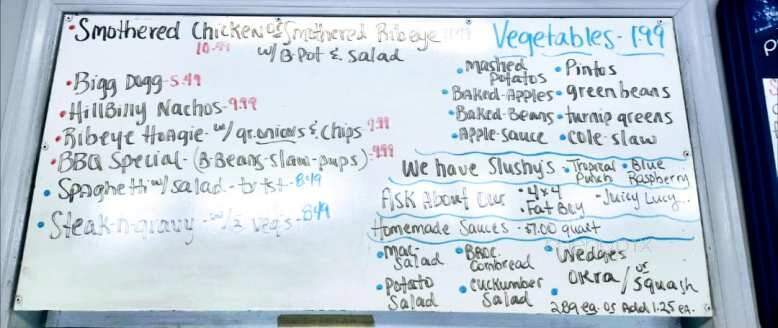 • Smothered Chicken or Smothered Ribeye
10.99 w/ B-Pot & Salad
• Bigg Dogg - 5.49
• Hillbilly Nachos - 9.99
• Ribeye Hoagie - w/ gr. onions & Chips - 9.99
• BBQ Special - (B-Beans - slaw - pups) - 9.99
• Spaghetti w/ salad - tx tst - 8.49
• Steak-n-gravy - w/ 2 veg's - 8.49
Vegetables - 1.99
• Mashed Potatoes • Pintos
• Baked-Apples • green beans
• Baked-Beans • turnip greens
• Apple-sauce • Cole-slaw
We have Slushy's • Tropical Punch • Blue Raspberry
Ask About our • 4x4 • Fat Boy - Juicy Lucy
Homemade Sauces - $7.00 quart
• Mac-Salad • Broc. Cornbread • Wedges
• Potato Salad • Cuckumber Salad • Okra / or Squash
2.89 ea. or Add 1.25 ea.